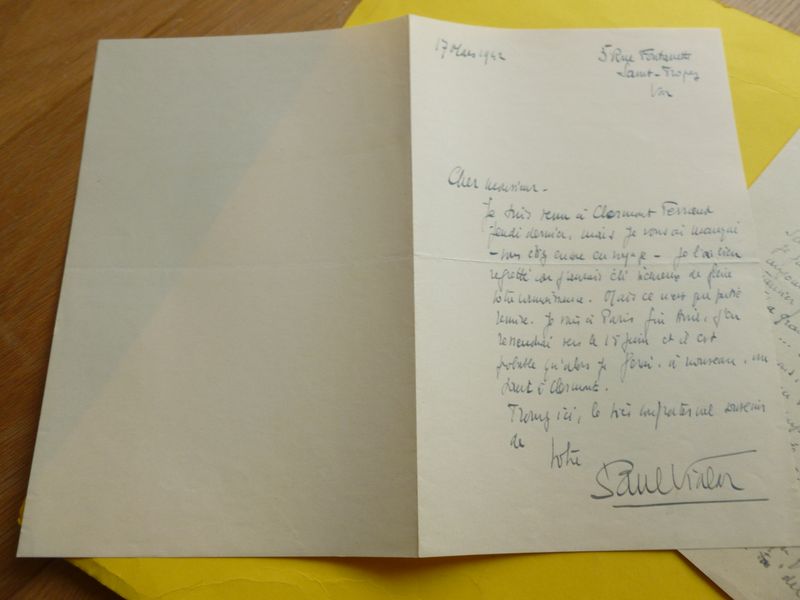 17 Mars 1942
5 Rue
Saint-Tropez
Var
Cher monsieur -
Je suis venu à Clermont Ferrand
jeudi dernier, mais je vous ai manqué
- vous étiez encore en voyage - Je l'ai bien
regretté car j'aurais été heureux de faire
votre connaissance. Mais ce n'est que partie
remise. Je vais à Paris fin Avril, j'en
redescendrai vers le 15 juin et il est
probable qu'alors je ferai, à nouveau, un
saut à Clermont.
Trouvez ici, le très confraternel souvenir
de
votre
Paul Vialar